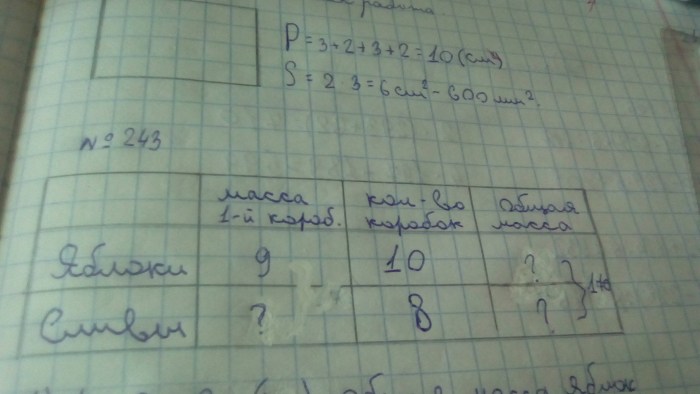 работа
P = 3+2+3+2 = 10 (см)
S = 2 3 = 6 см² - 600 мм²
№ 243
масса
1-й короб.
кол-во
коробок
общая
масса
Яблоки 9 10 ?
Сливы ? 8 ?
масса яблок